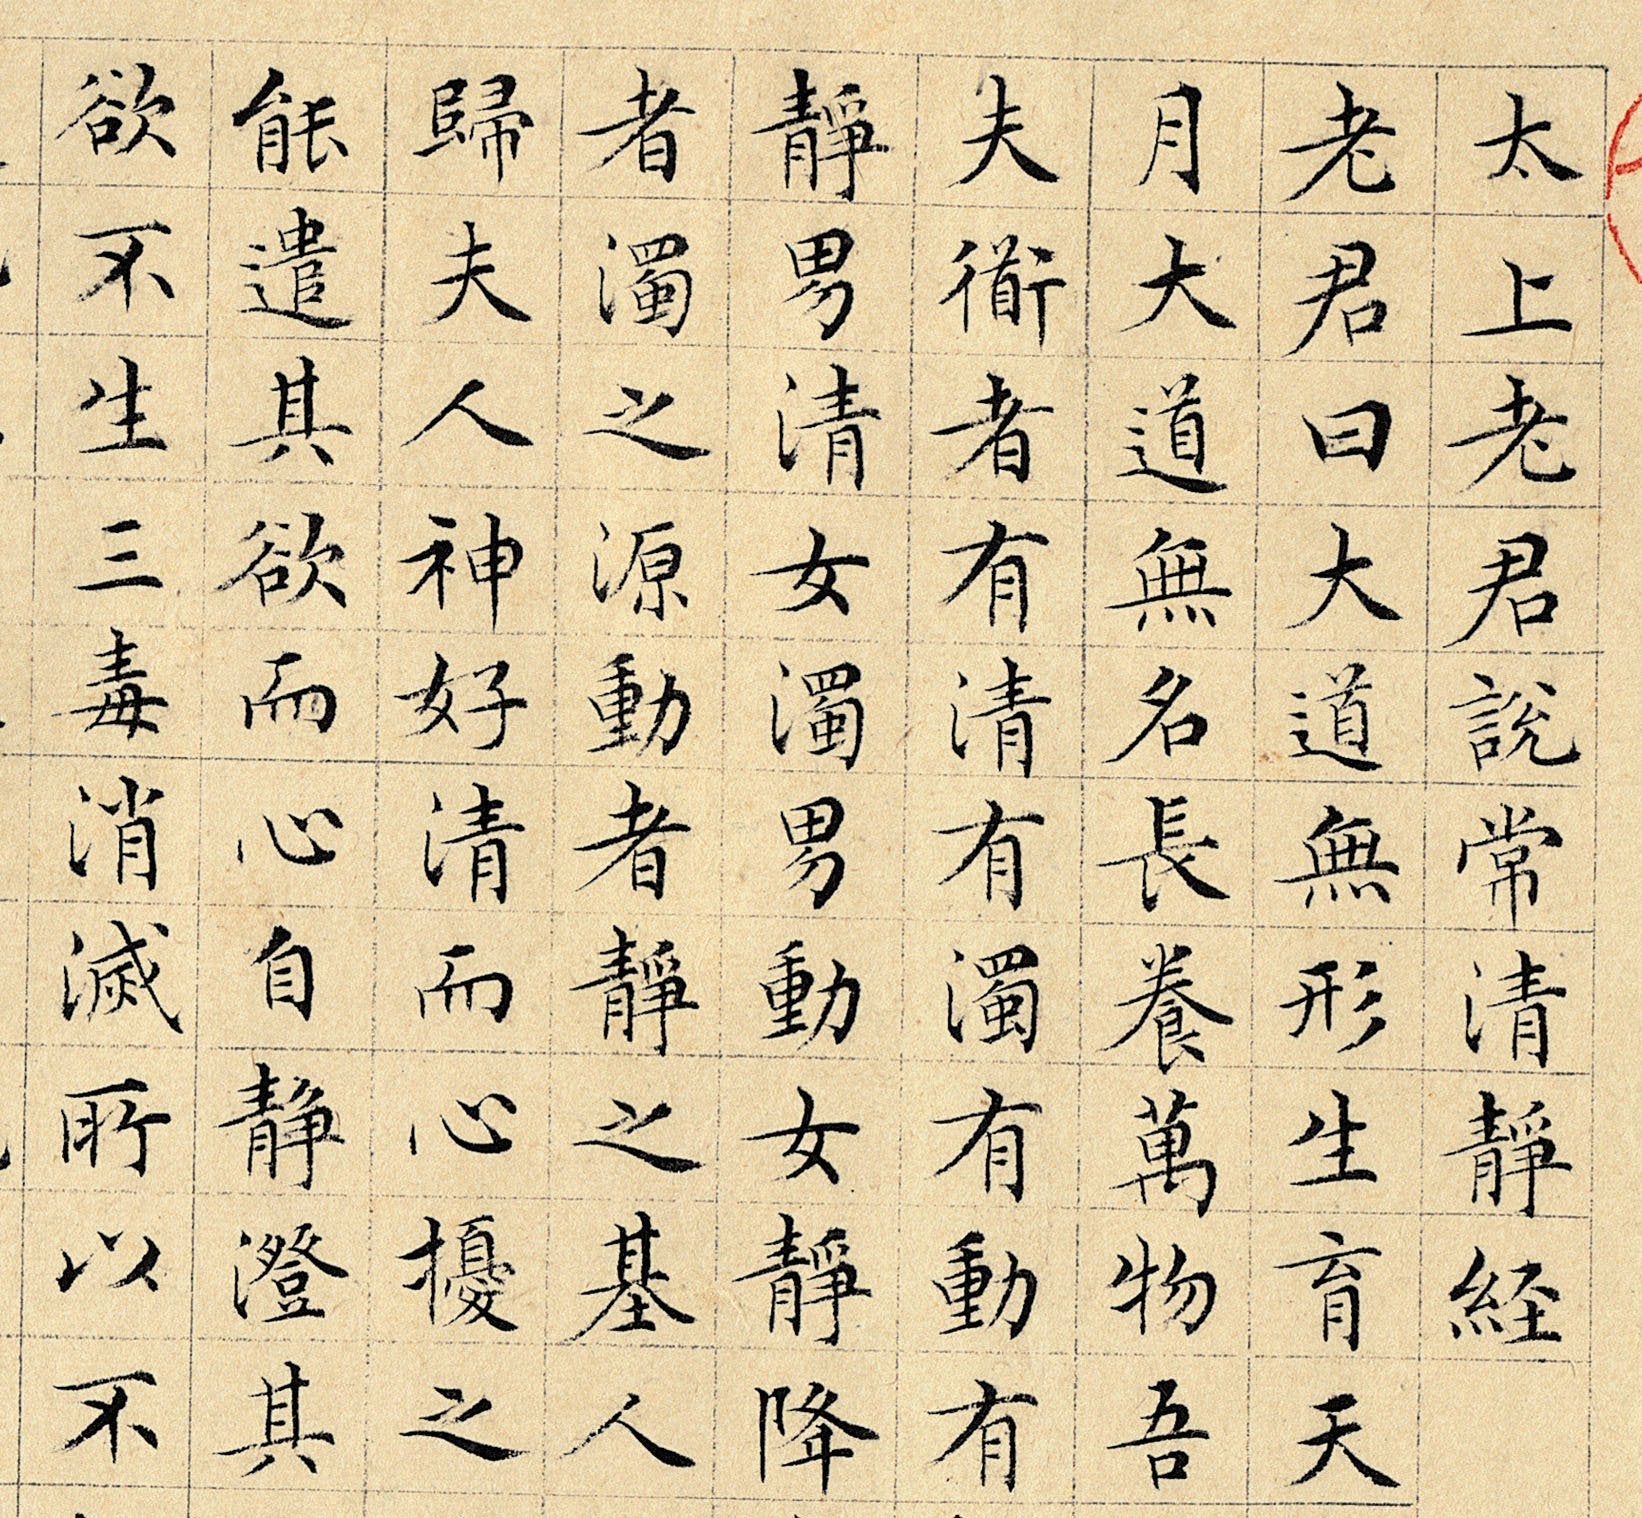 太上老君說常清靜経
老君曰大道無形生育天
月大道無名長養萬物吾
夫衜者有清有濁有動有
靜男清女濁男動女靜降
者濁之源動者靜之基人
歸夫人神好清而心擾之
能遣其欲而心自静澄其
欲不生三毒消滅所以不